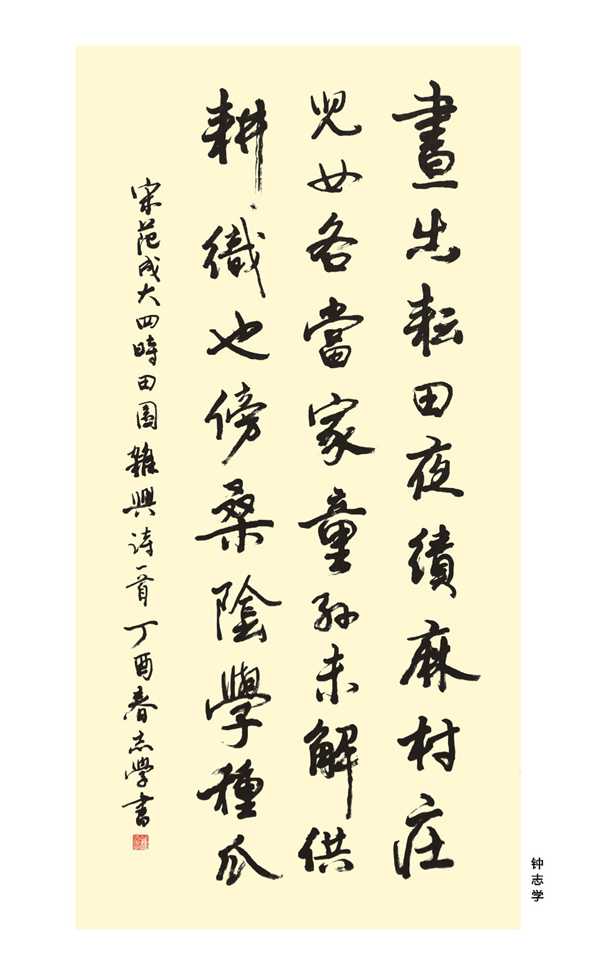 晝出耘田夜績麻村庄
兒女各當家童孫未解供
耕織也傍桑陰學種瓜
宋范成大四時田園雜興诗一首丁酉春志學書
钟志学